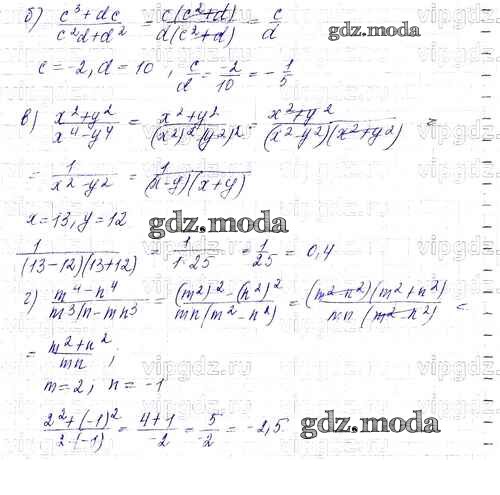 б) (c³+dc)/(c²d+d²) = (c(c²+d))/(d(c²+d)) = c/d
gdz.moda
c=-2, d=10, c/d = -2/10 = -1/5
в) (x²+y²)/(x⁴-y⁴) = (x²+y²)/((x²)²-(y²)²) = (x²+y²)/((x²-y²)(x²+y²)) =
= 1/(x²-y²) = 1/((x-y)(x+y))
x=13, y=12
gdz.moda
1/((13-12)(13+12)) = 1/(1·25) = 1/25 = 0,4
г) (m⁴-n⁴)/(m³n-mn³) = ((m²)²-(n²)²)/(mn(m²-n²)) = ((m²-n²)(m²+n²))/(mn(m²-n²)) =
= (m²+n²)/(mn);
m=2, n=-1
(2²+(-1)²)/(2·(-1)) = (4+1)/(-2) = 5/(-2) = -2,5
gdz.moda